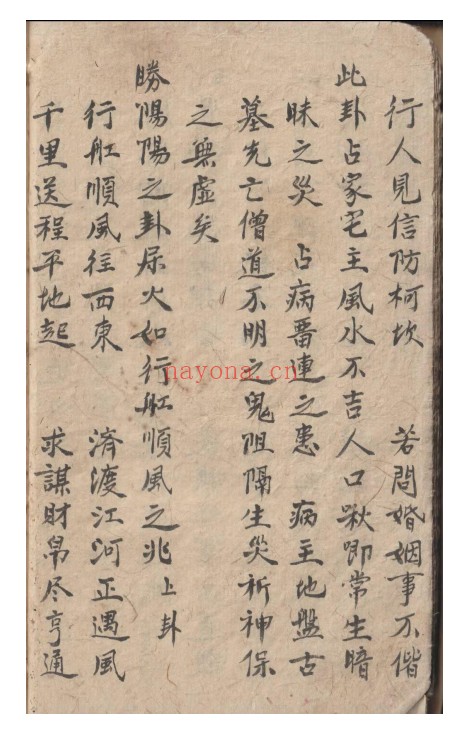 行人見信防柯坎 若問婚姻事不偕
此卦占家宅主風水不吉人口啾即常生暗
昧之災 占病畨連之患 病主地盤古
墓先亡僧道不明之鬼阻隔生災祈神保
之無虛矣
勝陽陽之卦屬火如行舡順風之兆 上卦
行舡順風往西東 済渡江河正遇風
千里送程平地起 求謀財帛尽亨通
nayona.cn